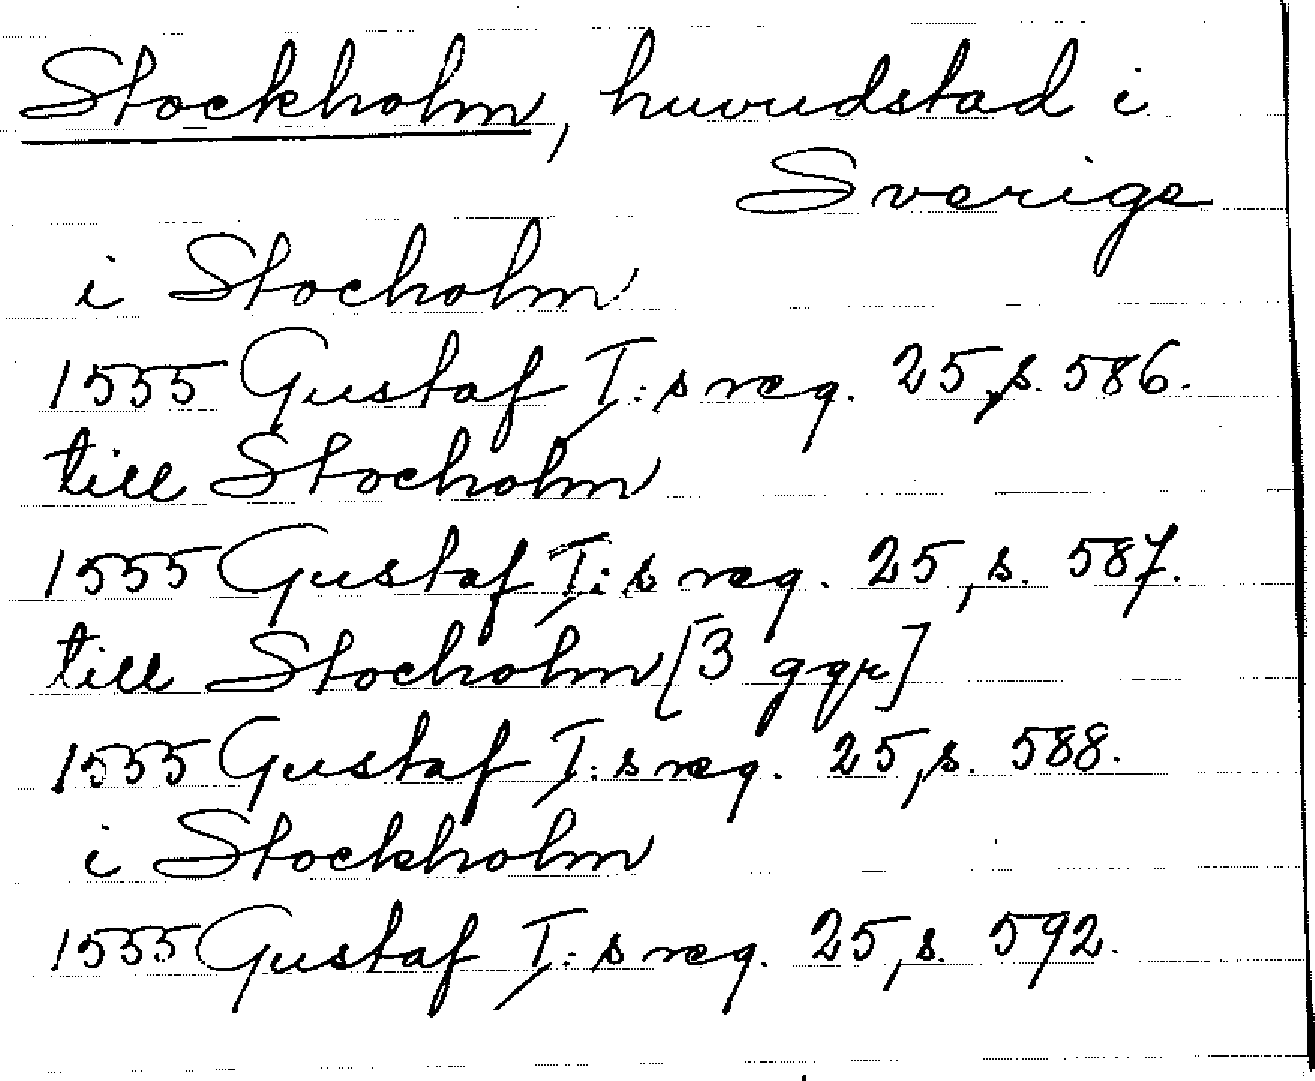 Stockholm, huvudstad i
Sverige
i Stocholm
1555 Gustaf I:s reg. 25, s. 586.
till Stocholm
1555 Gustaf I:s reg. 25, s. 587.
till Stocholm [3 ggr]
1555 Gustaf I:s reg. 25, s. 588.
i Stockholm
1555 Gustaf I:s reg. 25, s. 592.